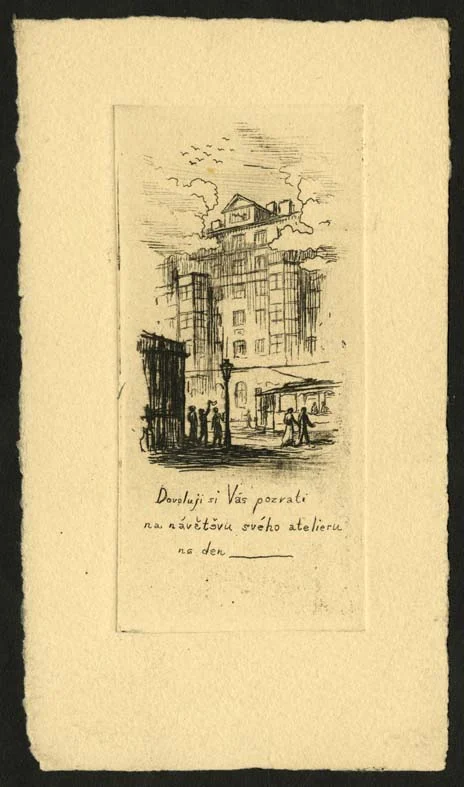 Dovoluji si Vás pozvati
na návštěvu svého atelieru
na den ______